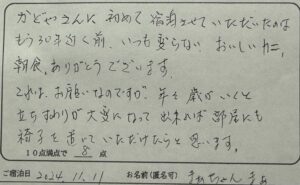 かどやさんに初めて宿泊させていただいたのは
もう30年近く前、いつも変らないおいしいカニ、
朝食、ありがとうございます。
これは、お願いなのですが、年々歳がいくと
立ちすわりが大変になって出来れば部屋にも
椅子を置いていただけたらと思います。
10点満点で 8 点
ご宿泊日 2024.11.11 お名前(匿名可) まぁちゃん